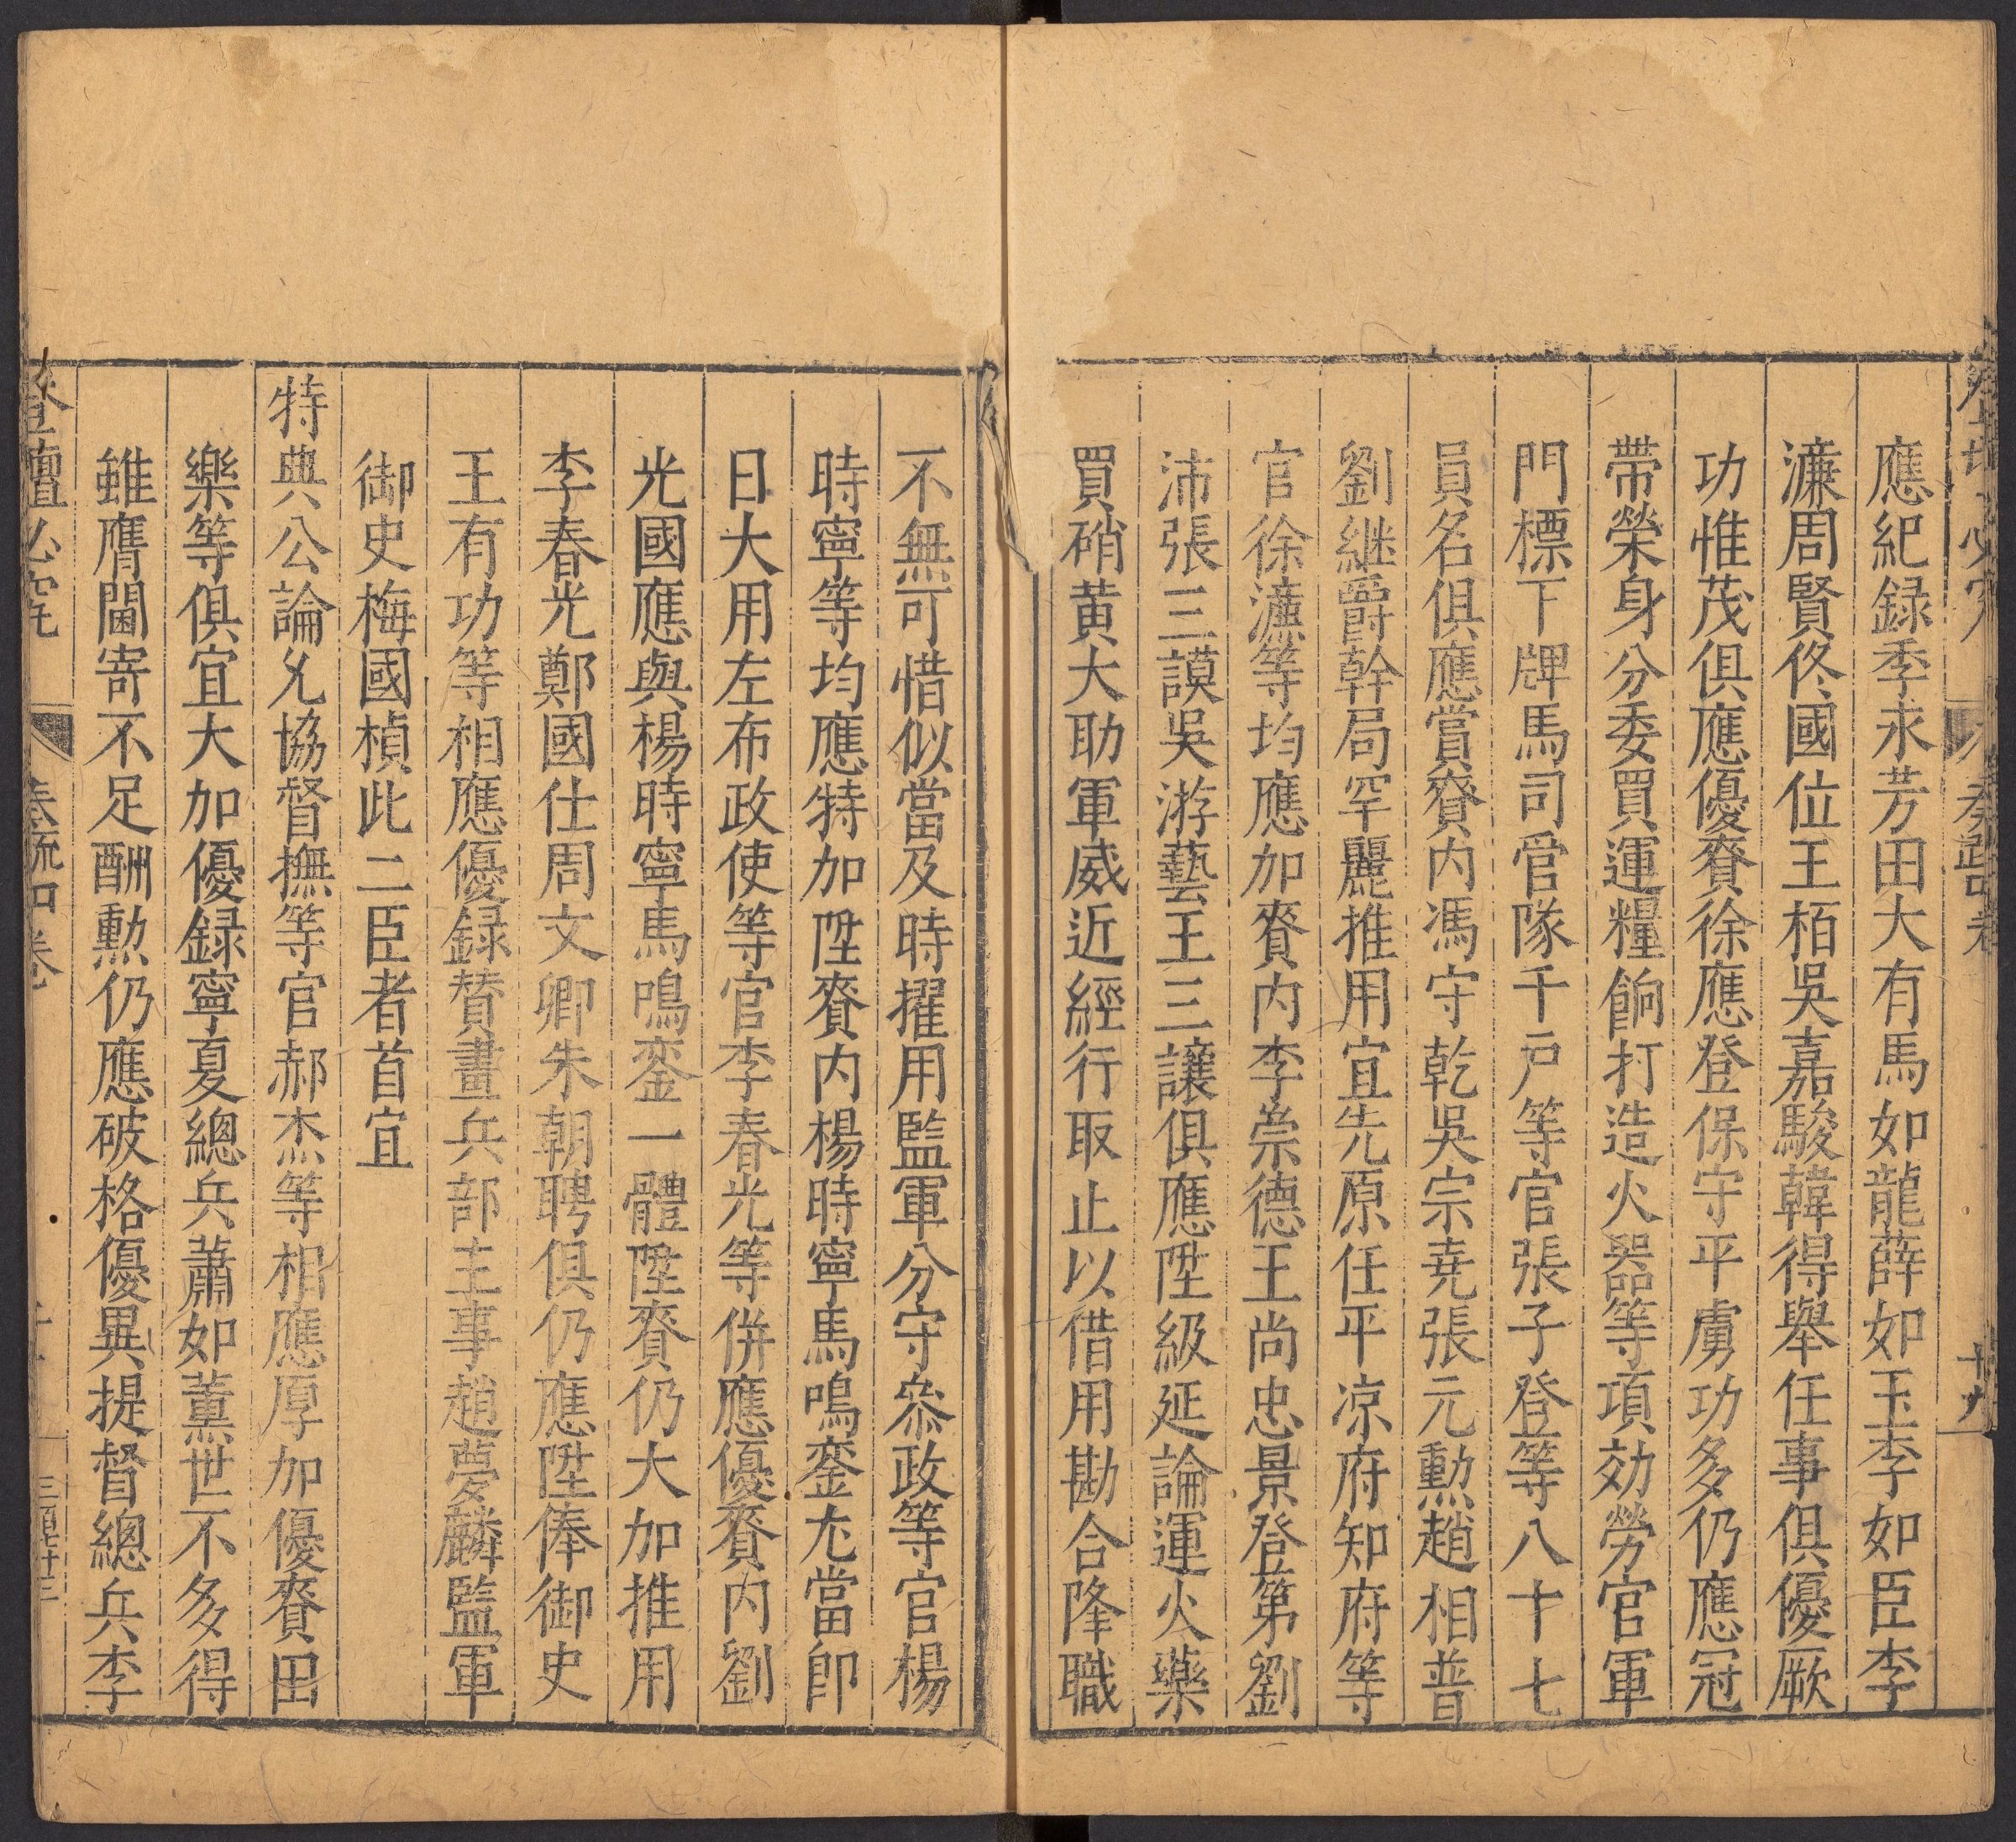 應紀録季永芳田大有馬如龍薛如玉李如臣李
濂周賢佟國位王栢吳嘉駿韓得舉任事俱優厥
功惟茂俱應優賚徐應登保守平虜功多仍應冠
帶榮身分委買運糧餉打造火器等項効勞官軍
門標下牌馬司官隊千戶等官張子登等八十七
員名俱應賞賚内馮守乾吳宗尭張元勳趙相普
劉継爵幹局罕麗推用宜先原任平凉府知府等
官徐等均應加賚内李崇德王尚忠景登第劉
沛張三謨吳游藝王三讓俱應陞級延論運火藥
買硝黄大助軍威近經行取止以借用勘合降職
不無可惜似當及時擢用監軍分守叅政等官楊
時寧等均應特加陞賚内楊時寧馬鳴鑾尤當即
日大用左布政使等官李春光等併應優賚内劉
光國應與楊時寧馬鳴鑾一體陞賚仍大加推用
李春光鄭國仕周文卿朱朝聘俱仍應陞俸御史
王有功等相應優録賛畫兵部主事趙夢麟監軍
御史梅國楨此二臣者首宜
特典公論允協督撫等官郝杰等相應厚加優賚田
樂等俱宜大加優録寧夏總兵蕭如薰世不多得
雖膺閫寄不足酬勲仍應破格優異提督總兵李
登壇必究
奏疏四卷